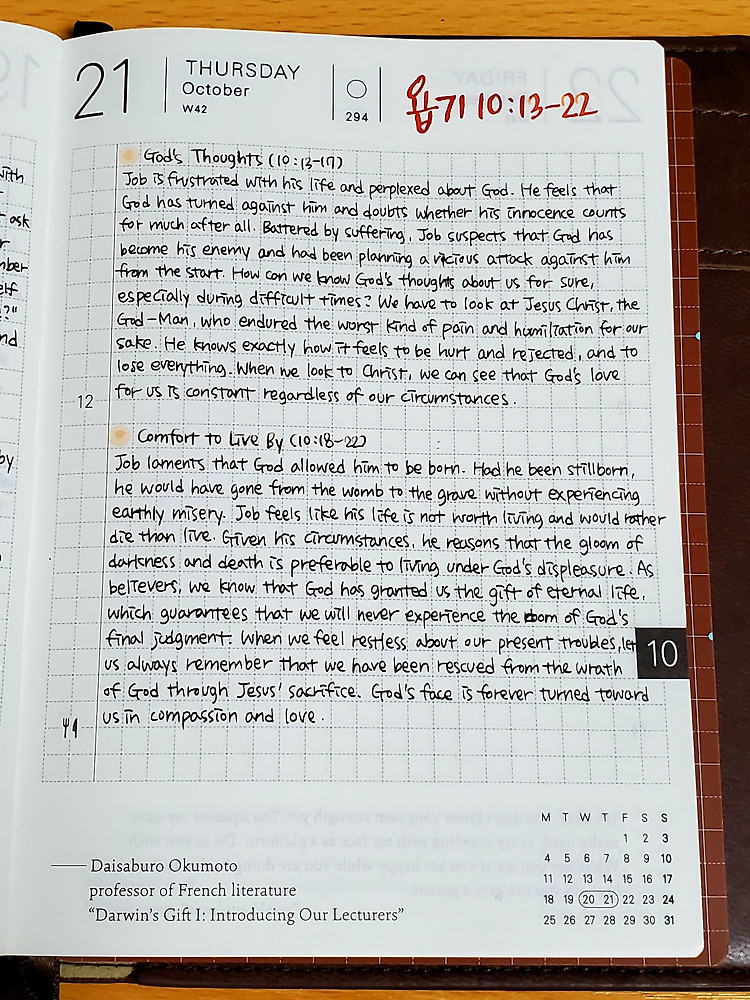 21
THURSDAY
October
W42
294
욥기 10:13-22
God's Thoughts (10:13-17)
Job is frustrated with his life and perplexed about God. He feels that
God has turned against him and doubts whether his innocence counts
for much after all. Battered by suffering, Job suspects that God has
become his enemy and had been planning a vicious attack against him
from the start. How can we know God's thoughts about us for sure,
especially during difficult times? We have to look at Jesus Christ, the
God-Man, who endured the worst kind of pain and humiliation for our
sake. He knows exactly how it feels to be hurt and rejected, and to
lose everything. When we look to Christ, we can see that God's love
12
for us is constant regardless of our circumstances.
Comfort to Live By (10:18-22)
Job laments that God allowed him to be born. Had he been stillborn,
he would have gone from the womb to the grave without experiencing
earthly misery. Job feels like his life is not worth living and would rather
die than live. Given his circumstances, he reasons that the gloom of
darkness and death is preferable to living under God's displeasure. As
believers, we know that God has granted us the gift of eternal life,
which guarantees that we will never experience the doom of God's
final judgment. When we feel restless about our present troubles, let
us always remember that we have been rescued from the wrath
10
of God through Jesus' sacrifice. God's face is forever turned toward
us in compassion and love.
with
ask
mber
elf
?"
nd
by
Daisaburo Okumoto
professor of French literature
"Darwin's Gift I: Introducing Our Lecturers"
M T W T F S S
1 2 3
4 5 6 7 8 9 10
11 12 13 14 15 16 17
18 19 20 21 22 23 24
25 26 27 28 29 30 31